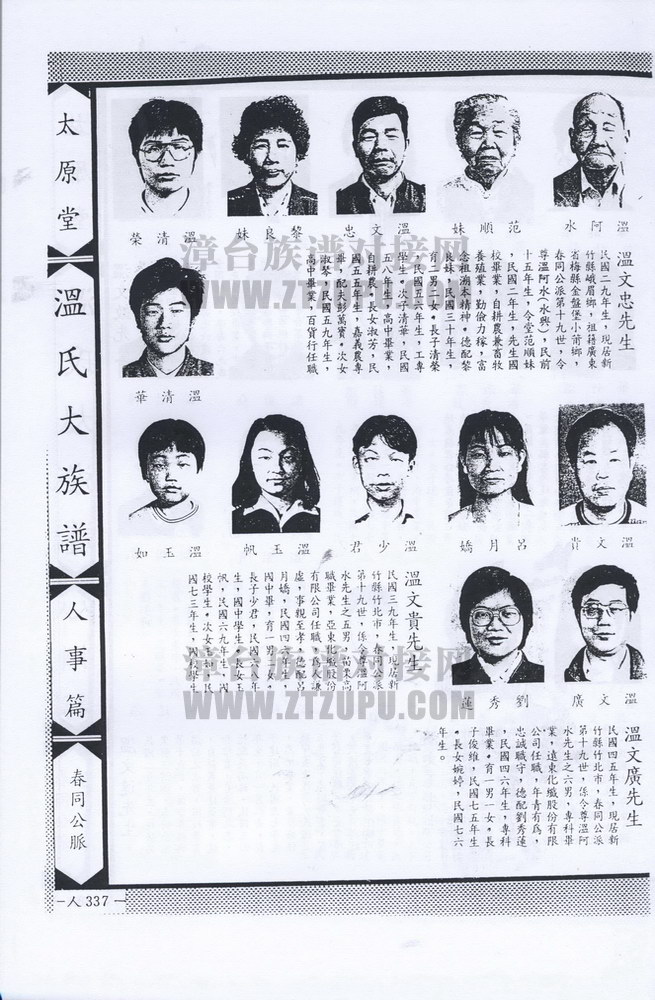 太原堂
溫氏大族譜
人事篇
春同公脈
溫阿水
范順妹
溫文忠
黎良妹
溫清榮
溫文忠先生
民國二九年生，現居新
竹縣峨眉鄉，祖籍廣東
省梅縣金盤堡小莆鄉，
春同公派第十九世，令
尊溫阿水(水興)，民前
十五年生，令堂范順妹
，民國二年生，先生國
校畢業，自耕農兼畜牧
養殖業，勤儉力稼，富
念祖溯本精神。德配黎
良妹，民國三十年生，
育二男二女。長子清榮
，民國五六年生，工專
學生。次子清華，民國
五八年生，高中畢業，
自耕農。長女淑芳，民
國五五年生，嘉義農專
畢，配夫彭萬寶。次女
淑琴，民國五九年生，
高中畢業，百貨行任職
溫清華
溫文貴
呂月嬌
溫少君
溫玉帆
溫玉如
溫文貴先生
民國三九年生，現居新
竹縣竹北市，春同公派
第十九世，係令尊溫阿
水先生之五男，苗業高
職畢業，亞東化纖股份
有限公司任職，為人謙
虛，事親至孝。德配呂
月嬌，民國四六年生，
國中畢，育一男二女。
長子少君，民國六八年
生，國中學生。長女玉
帆，民國六九年生，國
校學生。次女玉如，民
國七三年生，國校學生
溫文廣
劉秀蓮
溫文廣先生
民國四五年生，現居新
竹縣竹北市，春同公派
第十九世，係令尊溫阿
水先生之六男，專科畢
業，遠東化纖股份有限
公司任職，年青有為，
忠誠職守，德配劉秀蓮
，民國四六年生，專科
畢業。育一男一女。長
子俊維，民國七五年生
。長女婉婷，民國七六
年生。
人 337
漳台族谱对接网
WWW.ZTZUPU.COM
漳台族谱对接网
WWW.ZTZUPU.COM